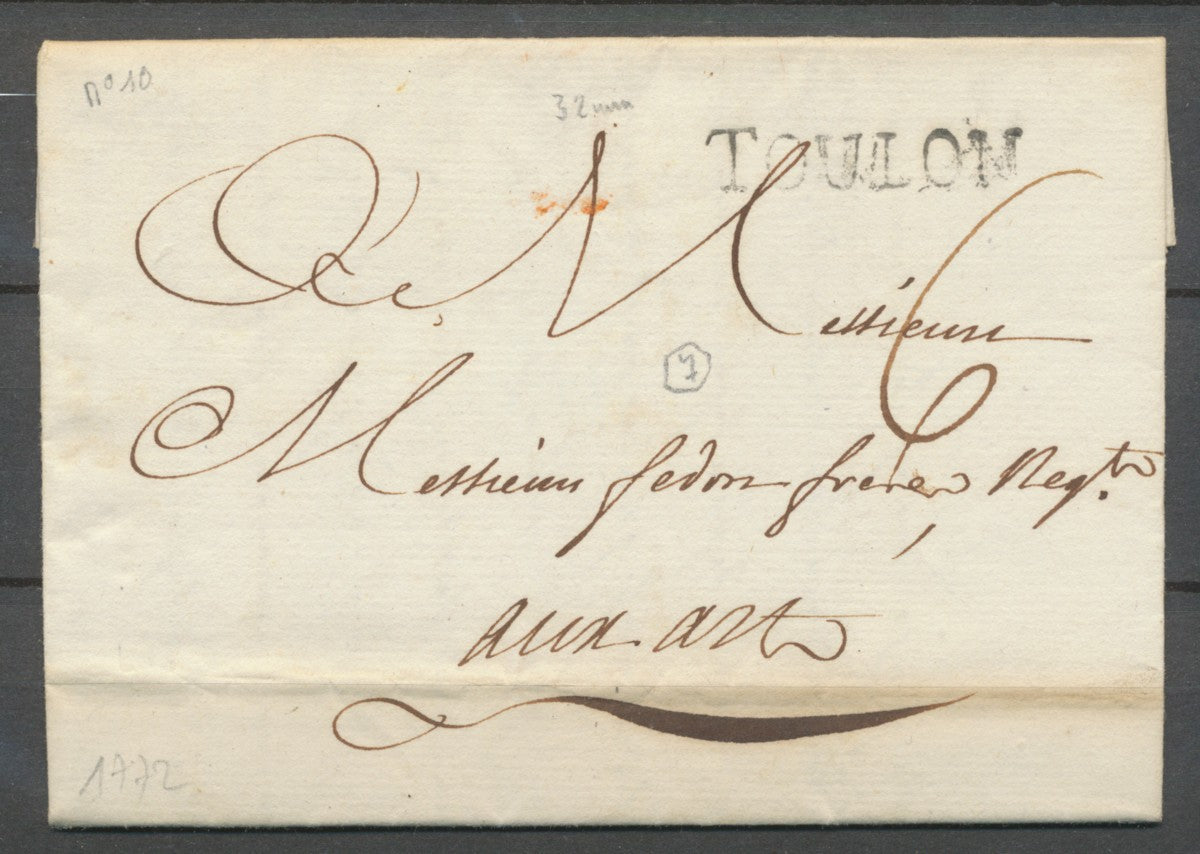 nº 10
32mm
TOULON
A Messieurs
6
7
Messieurs fedon freres Negts
aux arts
1772